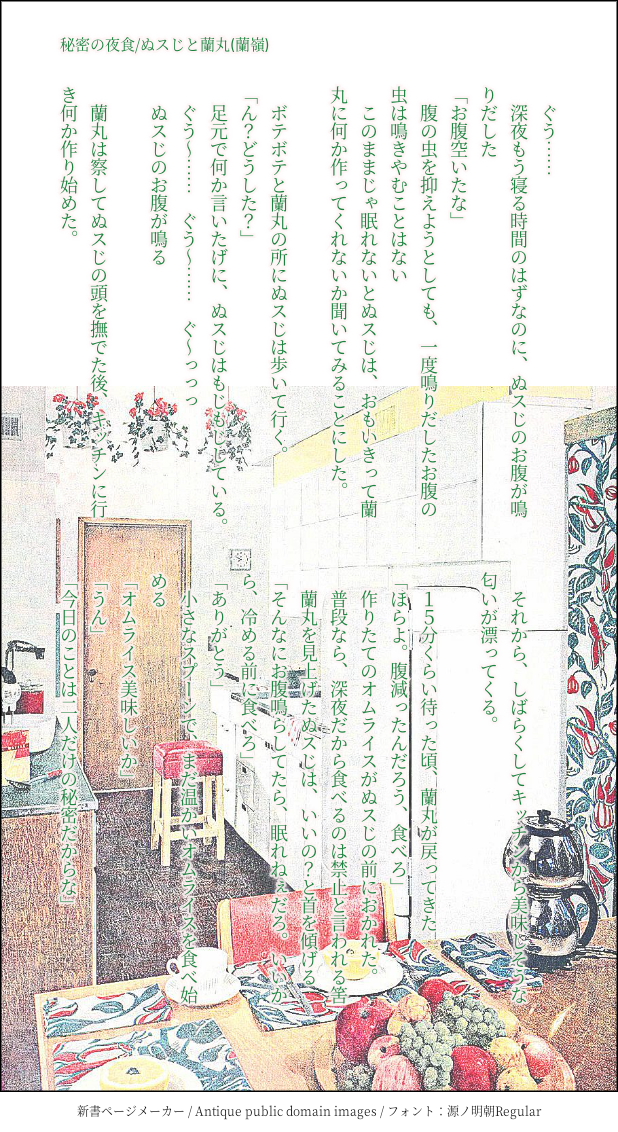 秘密の夜食/ぬスじと蘭丸(蘭嶺)
ぐう……
深夜もう寝る時間のはずなのに、ぬスじのお腹が鳴
りだした
「お腹空いたな」
腹の虫を抑えようとしても、一度鳴りだしたお腹の
虫は鳴きやむことはない
このままじゃ眠れないとぬスじは、おもいきって蘭
丸に何か作ってくれないか聞いてみることにした。
ボテボテと蘭丸の所にぬスじは歩いて行く。
「ん？どうした？」
足元で何か言いたげに、ぬスじはもじもじしている。
ぐう〜…… ぐう〜…… ぐ〜っっっ
ぬスじのお腹が鳴る
蘭丸は察してぬスじの頭を撫でた後、キッチンに行
き何か作り始めた。
それから、しばらくしてキッチンから美味しそうな
匂いが漂ってくる。
１５分くらい待った頃、蘭丸が戻ってきた
「ほらよ。腹減ったんだろう、食べろ」
作りたてのオムライスがぬスじの前におかれた。
普段なら、深夜だから食べるのは禁止と言われる筈
蘭丸を見上げたぬスじは、いいの？と首を傾げる
「そんなにお腹鳴らしてたら、眠れねぇだろ。いいか
ら、冷める前に食べろ」
「ありがとう」
小さなスプーンで、まだ温かいオムライスを食べ始
める
「オムライス美味しいか」
「うん」
「今日のことは二人だけの秘密だからな」
新書ページメーカー / Antique public domain images / フォント：源ノ明朝Regular